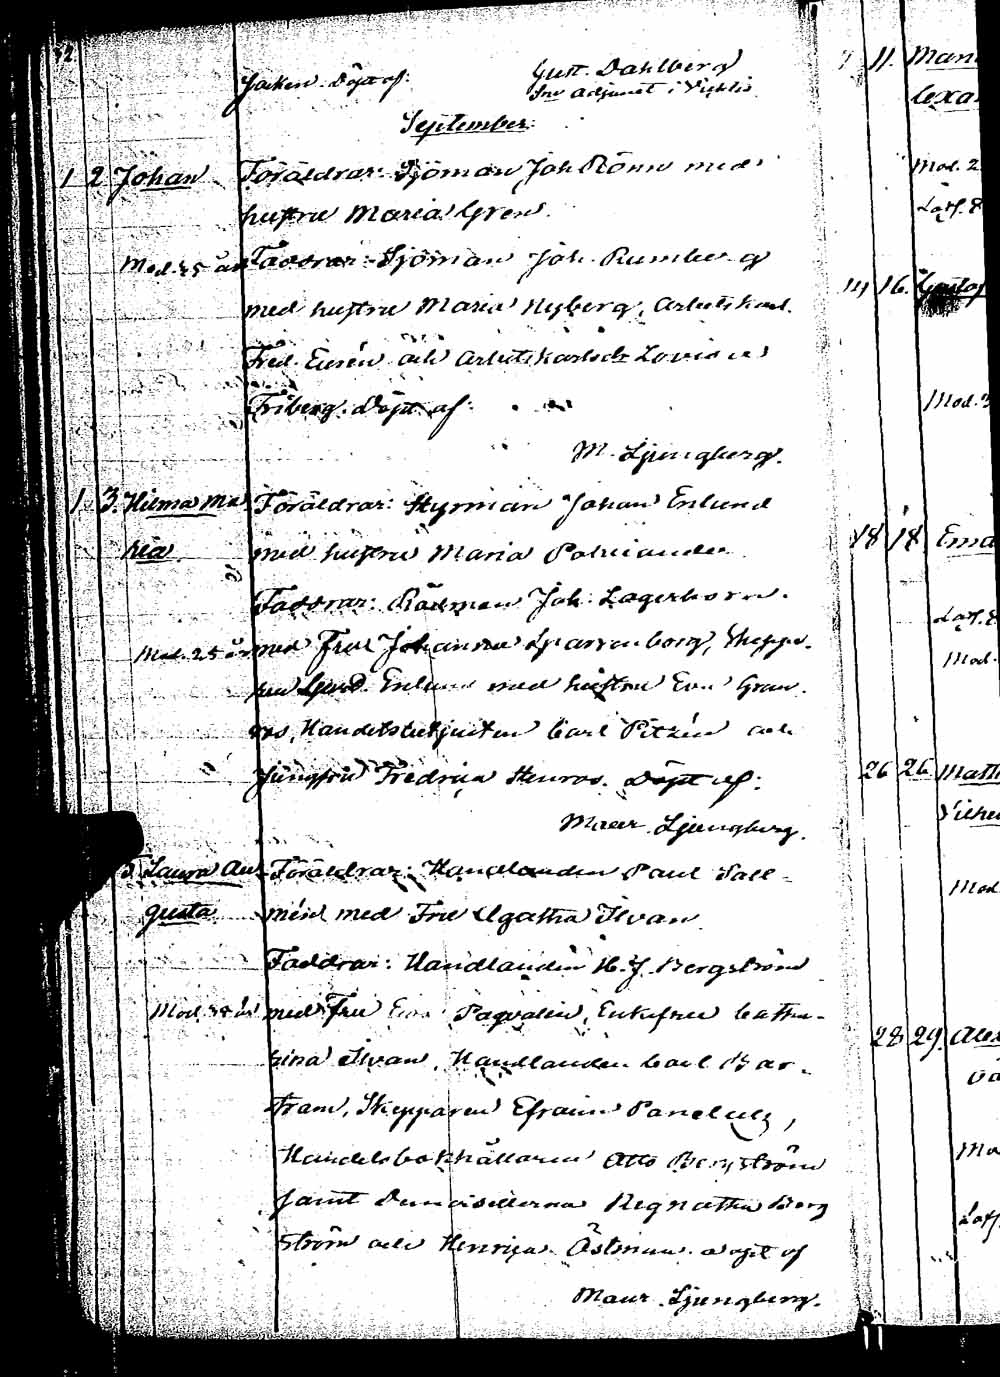 Döpt af:
Gust. Dahlberg
September.
1 2 Johan Föräldrar: Sjöman Joh Rönn med
hustru Maria Gren.
Mod. 25 år Faddrar: Sjöman Joh. Rumberg
med hustru Maria Nyberg, Arbetskarl.
Fred. Eurén och Arbetskarlsd: Lovisa
Friberg. Döpt af:
M. Ljungberg.
1 3. Hilma Ma- Föräldrar: Styrman Johan Enlund
ria med hustru Maria
Faddrar: Rådman Joh: Lagerborn.
Mod. 25 år med Fru Johanna Sparrenborg, Skeppa-
ren Enlund med hustru Eva Gran-
ros, Handelsbetjenten Carl Pitzén och
Jungfru Fredrica Stenros. Döpt af:
Maur. Ljungberg.
5. Laura Au- Föräldrar: Handlanden Paul Sall-
gusta mén med Fru Agatha Ilvan
Faddrar: Handlanden H. J. Bergström
Mod. 38 år med Fru Eva Enkefru Catha-
rina Ilvan, Handlanden Carl Bar-
tram, Skepparen Efraim
Handelsbokhållaren Otto Bergström
samt Demoisellerna Berg
ström och Henrica Östman. döpt af
Maur. Ljungberg.
11. Man
lexa
Mod. 2
14 16. Gustaf
Mod. 3
18 18 Ema
Mod.
26 26 Math
Vilhe
Mod.
28 29. Alex
Mo